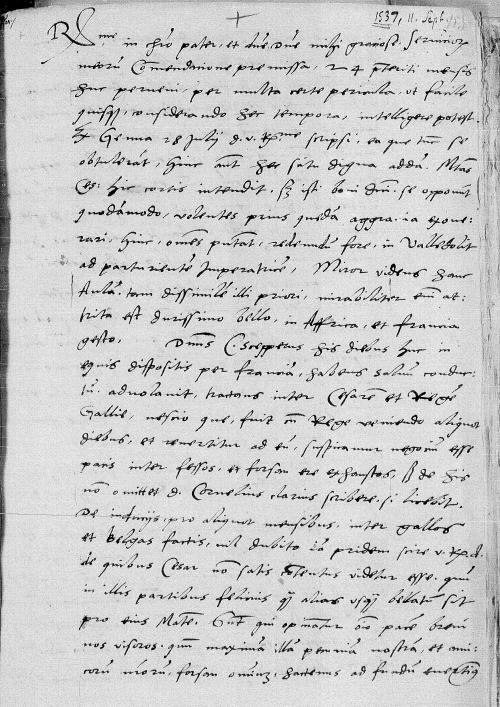 1537, 11. Sept.
R me in chro pater, et dne, dne mihi graciose. Serviciorum
meoru Comendacione premissa, 24 preteriti mensis
huc perveni, per multa certe pericula, ut facile
quisque, considerando hec tempora, intelligere potest.
Ex Genua 28 Julij d. v. scripsi, ea que tunc se
obtulerat, hinc aut hec satis digna adda. Mtas
Ces. hic cortis intendit, sed isti boni dni se opponunt
quodamodo, volentes prius queda aggravaia exone-
rari, hinc, omes putant, redeundu fore, in Valledolit
ad parturiente Imperatrice, Miror videns hanc
Aula, tam dissimile illi priori, mirabiliter em at-
trita est durissimo bello, in Affrica, et francia
gesto. Dnus C. Scepperus his diebus huc in
equis dispositis per francia, habens salvu conduc-
tu, advolavit, tractans inter Cesare et Rege
Gallie, nescio que, fuit cu Rege veniendo aliquot
diebus, et revertitur ad eu, suspicamur negociu esse
pacis inter fessos, et forsan ere exhaustos, sed de his
no omittet d. Cornelius clarius scribere, si licebit.
De inducijs, pro aliquot mensibus, inter gallos
et belgas factis, nil dubito ia pridem scire v.
de quibus Cesar no satis cotentus videtur esse, quu
in illis partibus felicius quam alias usque bellatu sit
pro eius Mate. Sunt qui opinantur om pace brevi
nos visuros, quu maxima illa penuria nostra, et ami-
coru nroru, forsan omniu, hactenus ad fundu